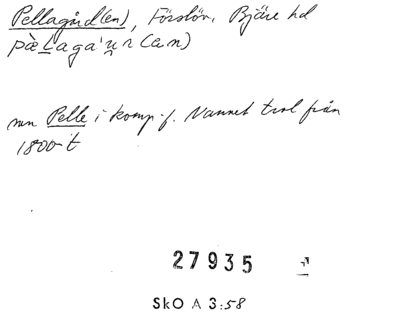 Pellagård(en), Förslöv, Bjäre hd
pæ̀Lagaꞌṵn(an)
mn Pelle i komp.f. Namnet trol från
1800-t
27935
SkO A 3:58